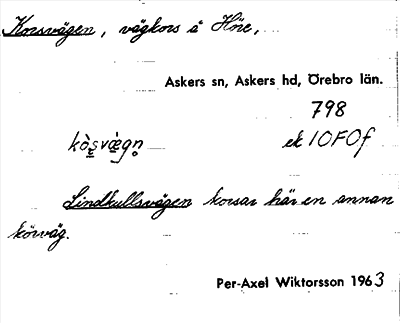 Korsvägen, vägkors å Höre,
Askers sn, Askers hd, Örebro län.
798
kòṣvä̀gn̥ ek 10F0f
Lindkullsvägen korsar här en annan
körväg.
Per-Axel Wiktorsson 1963